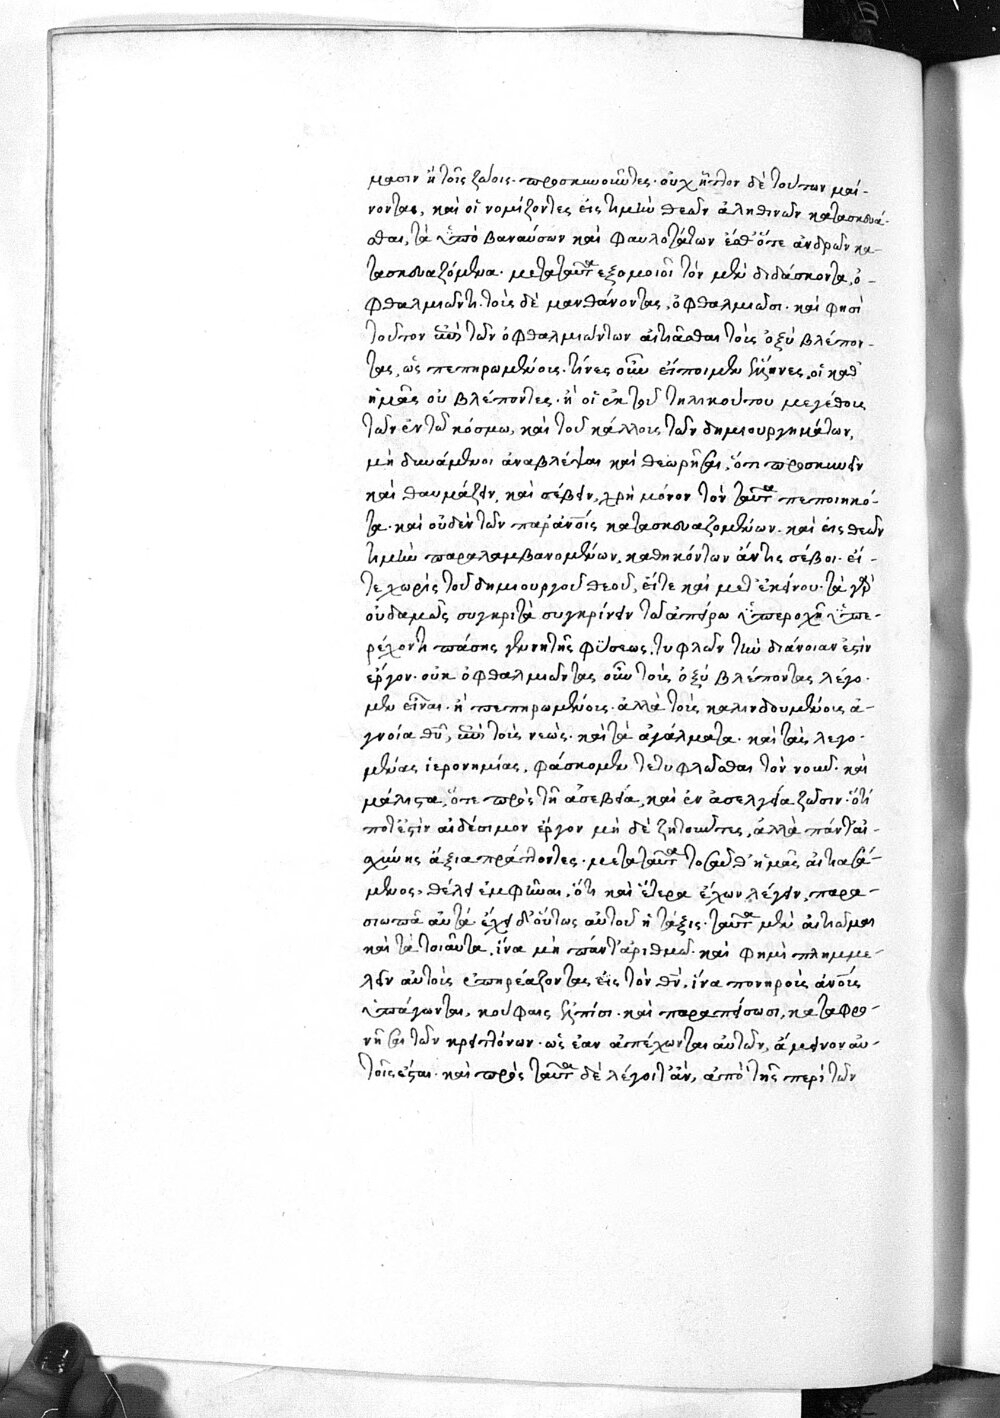 μασιν ἢ τοῖς ζώοις προσκυνοῦντες· οὐχ ἧττον δὲ τούτων μαί-
νονται, καὶ οἱ νομίζοντες εἰς τιμὴν θεῶν ἀληθινῶν κατασκευά-
σθαι, τὰ ὑπὸ βαναύσων καὶ φαυλοτάτων ἔσθ' ὅτε ἀνδρῶν κα-
τασκευαζόμενα· μετὰ ταῦτα ἐξομοιοῖ τὸν μὲν διδάσκοντα, ὀ-
φθαλμιῶντι· τοὺς δὲ μανθάνοντας, ὀφθαλμιῶσι· καὶ φησὶ
τοῦτον ἐπὶ τῶν ὀφθαλμιώντων αἰτιᾶσθαι τοὺς ὀξὺ βλέπον-
τας, ὡς πεπηρωμένους· τίνες οὖν εἴποιμεν ἕλληνες, οἱ καθ'
ἡμᾶς οὐ βλέποντες· ἢ οἱ ἐκ τοῦ τηλικούτου μεγέθους
τῶν ἐν τῷ κόσμῳ, καὶ τοῦ κάλλους τῶν δημιουργημάτων,
μὴ δυνάμενοι ἀναβλέψαι καὶ θεωρῆσαι, ὅτι προσκυνεῖν
καὶ θαυμάζειν, καὶ σέβειν, χρὴ μόνον τὸν ταῦτα πεποιηκό-
τα· καὶ οὐδὲν τῶν παρ' ἀνοις κατασκευαζομένων· καὶ εἰς θεῶν
τιμὴν παραλαμβανομένων, καθηκόντως ἄν τις σέβοι· εἴ-
τε χωρὶς τοῦ δημιουργοῦ θεοῦ, εἴτε καὶ μετ' ἐκείνου· τὰ γὰρ
οὐδαμῶς συγκριτὰ συγκρίνειν τῷ ἀπείρῳ ὑπεροχῇ ὑπε-
ρέχοντι πάσης γενητῆς φύσεως, τυφλῶν τὴν διάνοιαν ἐστὶν
ἔργον· οὐκ ὀφθαλμιῶντας οὖν τοὺς ὀξὺ βλέποντας λέγο-
μεν εἶναι· ἢ πεπηρωμένους· ἀλλὰ τοὺς καλινδουμένους ἀ-
γνοίᾳ θυ, ἐπὶ τοὺς νεὼς· καὶ τὰ ἀγάλματα· καὶ τὰς λεγο-
μένας ἱερομηνίας, φάσκομεν τετυφλῶσθαι τὸν νοῦν· καὶ
μάλιστα, ὅτε πρὸς τῇ ἀσεβείᾳ, καὶ ἐν ἀσελγείᾳ ζῶσιν· ὅτι
ποτ' ἐστὶν αἰδέσιμον ἔργον μὴ δὲ ζητοῦντες, ἀλλὰ πάντ' αἰ-
σχύνης ἄξια πράττοντες· μετὰ ταῦτα τοσαῦθ' ἡμᾶς αἰτιασά-
μενος, θέλει ἐμφῆναι, ὅτι καὶ ἕτερα ἔχων λέγειν, παρα-
σιωπᾷ αὐτά ἔχει δ' οὕτως αὐτοῦ ἡ τάξις· ταῦτα μὲν αἰτιῶμαι
καὶ τὰ τοιαῦτα, ἵνα μὴ πάντ' ἀριθμῶ· καὶ φημὶ πλημμε-
λεῖν αὐτοὺς ἐπηρεάζοντας εἰς τὸν θν, ἵνα πονηροὺς ἀνους
ὑπάγωνται, κούφαις ἐλπίσι· καὶ παραπείσωσι, καταφρο-
νῆσαι τῶν κρειττόνων· ὡς ἐὰν ἀπέχωνται αὐτῶν, ἄμεινον αὐ-
τοῖς ἔσται· καὶ πρὸς ταῦτα δὲ λέγοιτ' ἂν, ἀπὸ τῆς περὶ τῶν